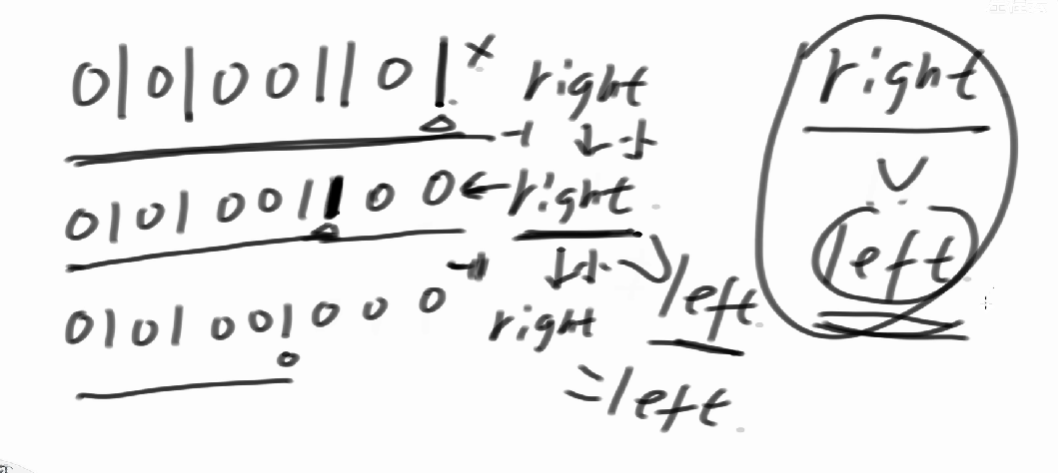 0101001101 x right
-1 ↓ -1
0101001100 ← right
-1 ↓ -1 > left
0101001000 right
= left
right
∨
left